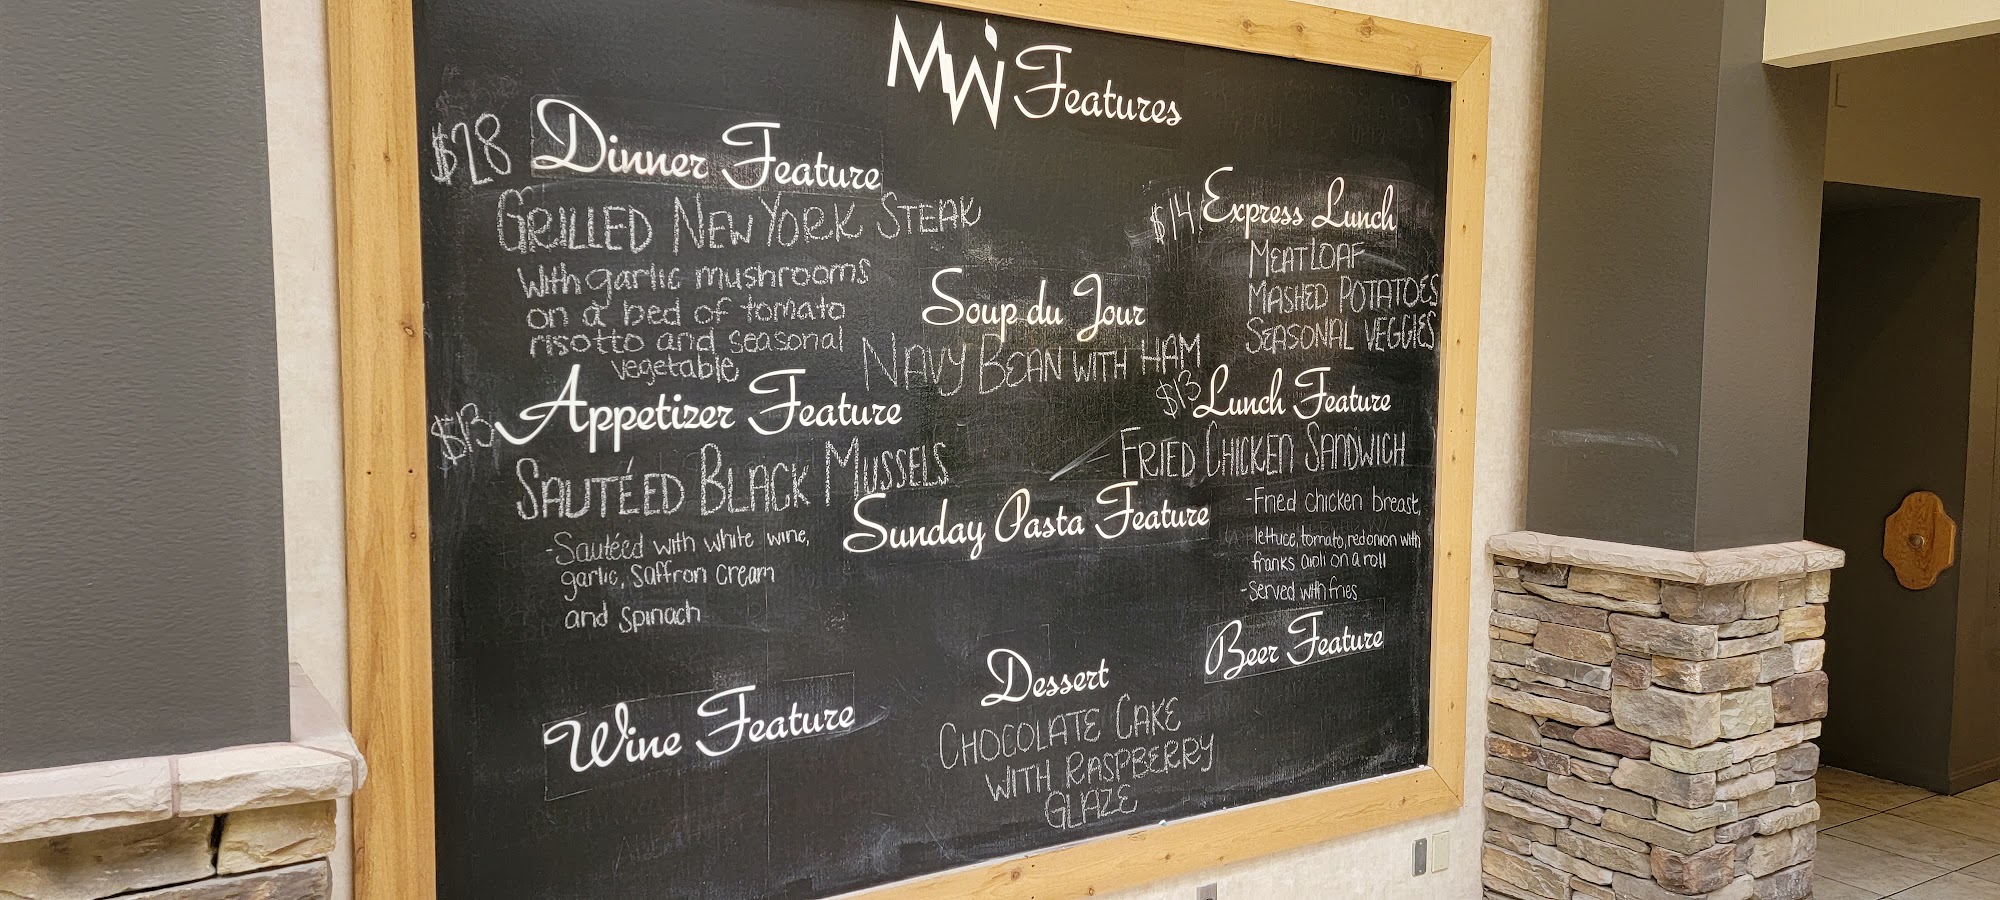 MW Features
$28 Dinner Feature
GRILLED NEW YORK STEAK
With garlic mushrooms
on a bed of tomato
risotto and seasonal
vegetable
$13 Appetizer Feature
SAUTÉED BLACK MUSSELS
-Sautéed with white wine,
garlic, saffron cream
and spinach
Wine Feature
Soup du Jour
NAVY BEAN WITH HAM
Sunday Pasta Feature
Dessert
CHOCOLATE CAKE
WITH RASPBERRY
GLAZE
$14 Express Lunch
MEATLOAF
MASHED POTATOES
SEASONAL VEGGIES
$13 Lunch Feature
FRIED CHICKEN SANDWICH
-Fried chicken breast,
lettuce, tomato, red onion with
franks aioli on a roll
-Served with fries
Beer Feature